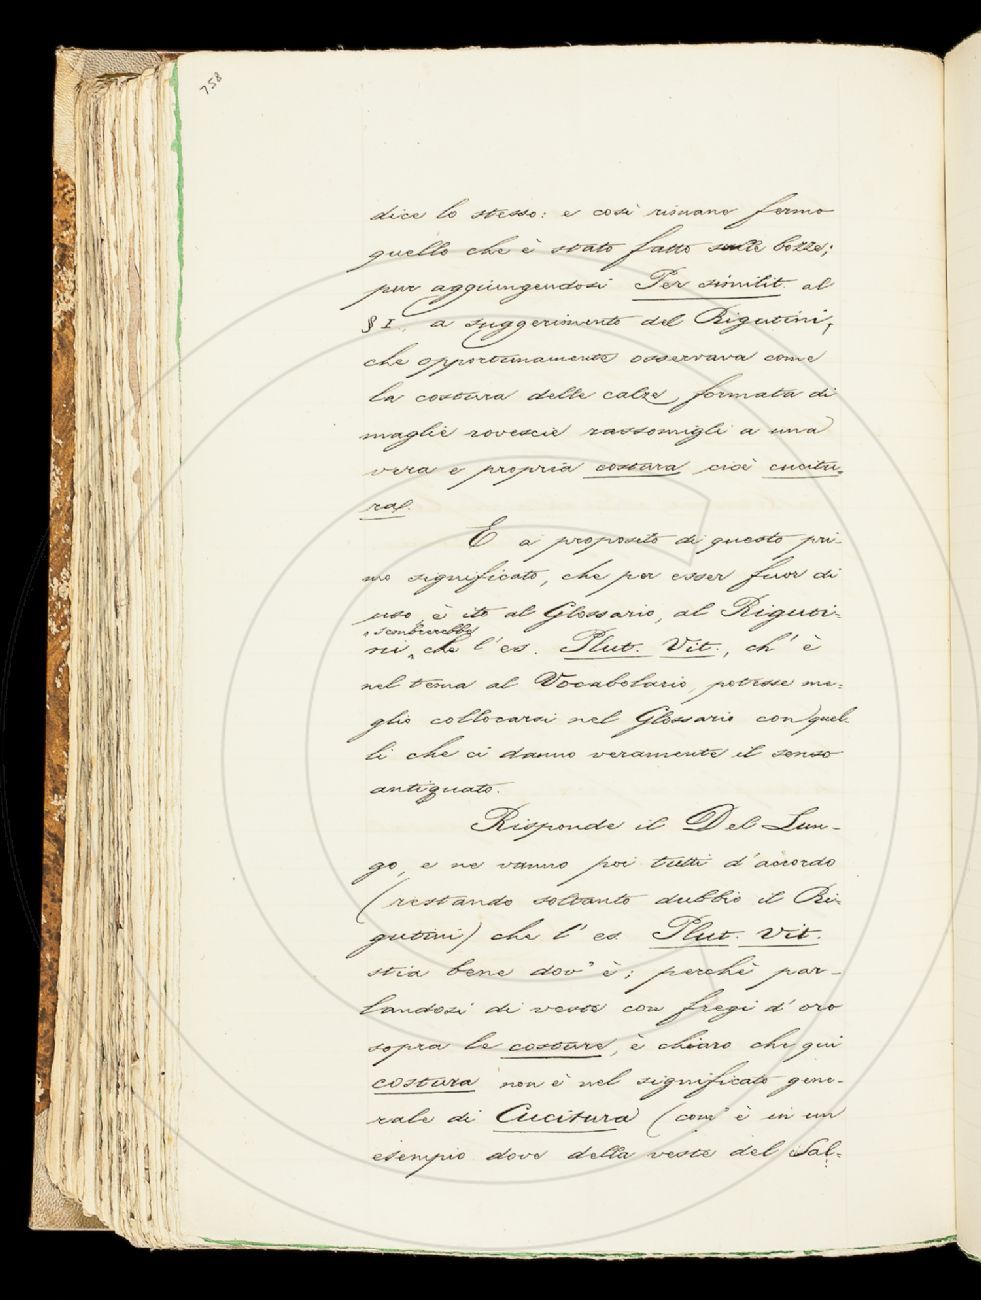 758
dice lo stesso: e così rimane fermo
quello che è stato fatto sulle bozze;
pur aggiungendosi Per similit. al
§ I., a suggerimento del Rigutini,
che opportunamente osservava come
la costura delle calze formata di
maglie rovescie rassomigli a una
vera e propria costura cioè cucitu-
ra.
E a proposito di questo pri-
mo significato, che per esser fuor di
uso, è ito al Glossario, al Riguti-
sembrerebbe
ni, che l'es. Plut. Vit., ch'è
nel tema al Vocabolario, potesse me-
glio collocarsi nel Glossario con quel-
li che ci danno veramente il senso
antiquato.
Risponde il Del Lun-
go, e ne vanno poi tutti d'accordo
(restando soltanto dubbio il Ri-
gutini) che l'es. Plut. Vit.
stia bene dov'è; perchè par-
landosi di veste con fregi d'oro
sopra le costure, è chiaro che qui
costura non è nel significato gene-
rale di Cucitura (com'è in un
esempio dove della veste del Sal-